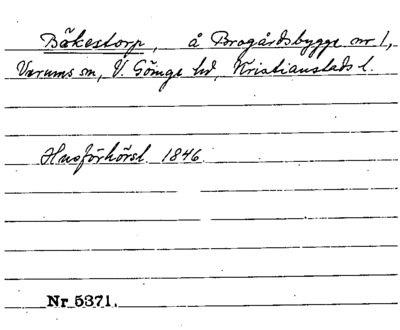 Bäkestorp, å Brogårdsbygge nr 1,
Verums sn, V. Göinge hd, Kristianstads l.
Husförhörsl. 1846.
Nr 5371.